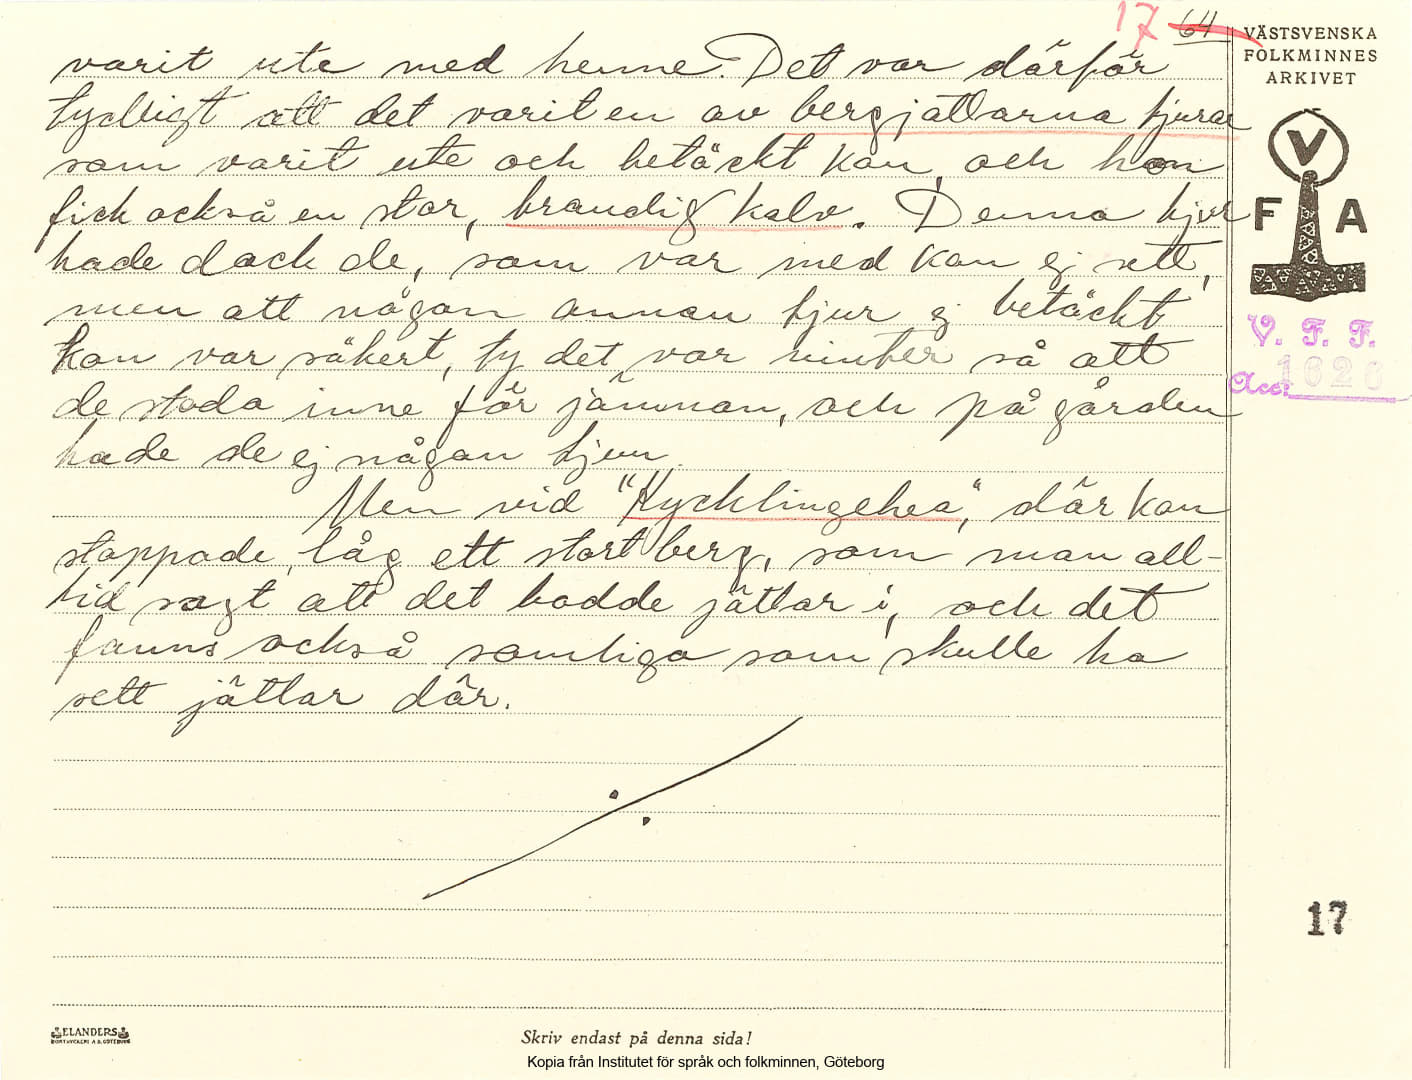 17 64
VÄSTSVENSKA
FOLKMINNES
ARKIVET
varit ute med henne. Det var därför
tydligt att det varit en av bergjättarna tjurar
som varit ute och betäckt kon, och hon
fick också en stor, brandig kalv. Denna tjur
hade dock de, som var med kon ej sett,
men att någon annan tjur ej betäckt
kon var säkert, ty det var vinter så att
de stodo inne för jämnan, och på gården
hade de ej någon tjur.
Men vid "Kycklingehea", där kon
stoppade, låg ett stort berg, som man all-
tid sagt att det bodde jättar i, och det
fanns också somliga som skulle ha
sett jättar där.
V
F A
V. F. F.
Acc: 1626
17
ELANDERS
BOKTRYCKERI A.B. GÖTEBORG
Skriv endast på denna sida!
Kopia från Institutet för språk och folkminnen, Göteborg